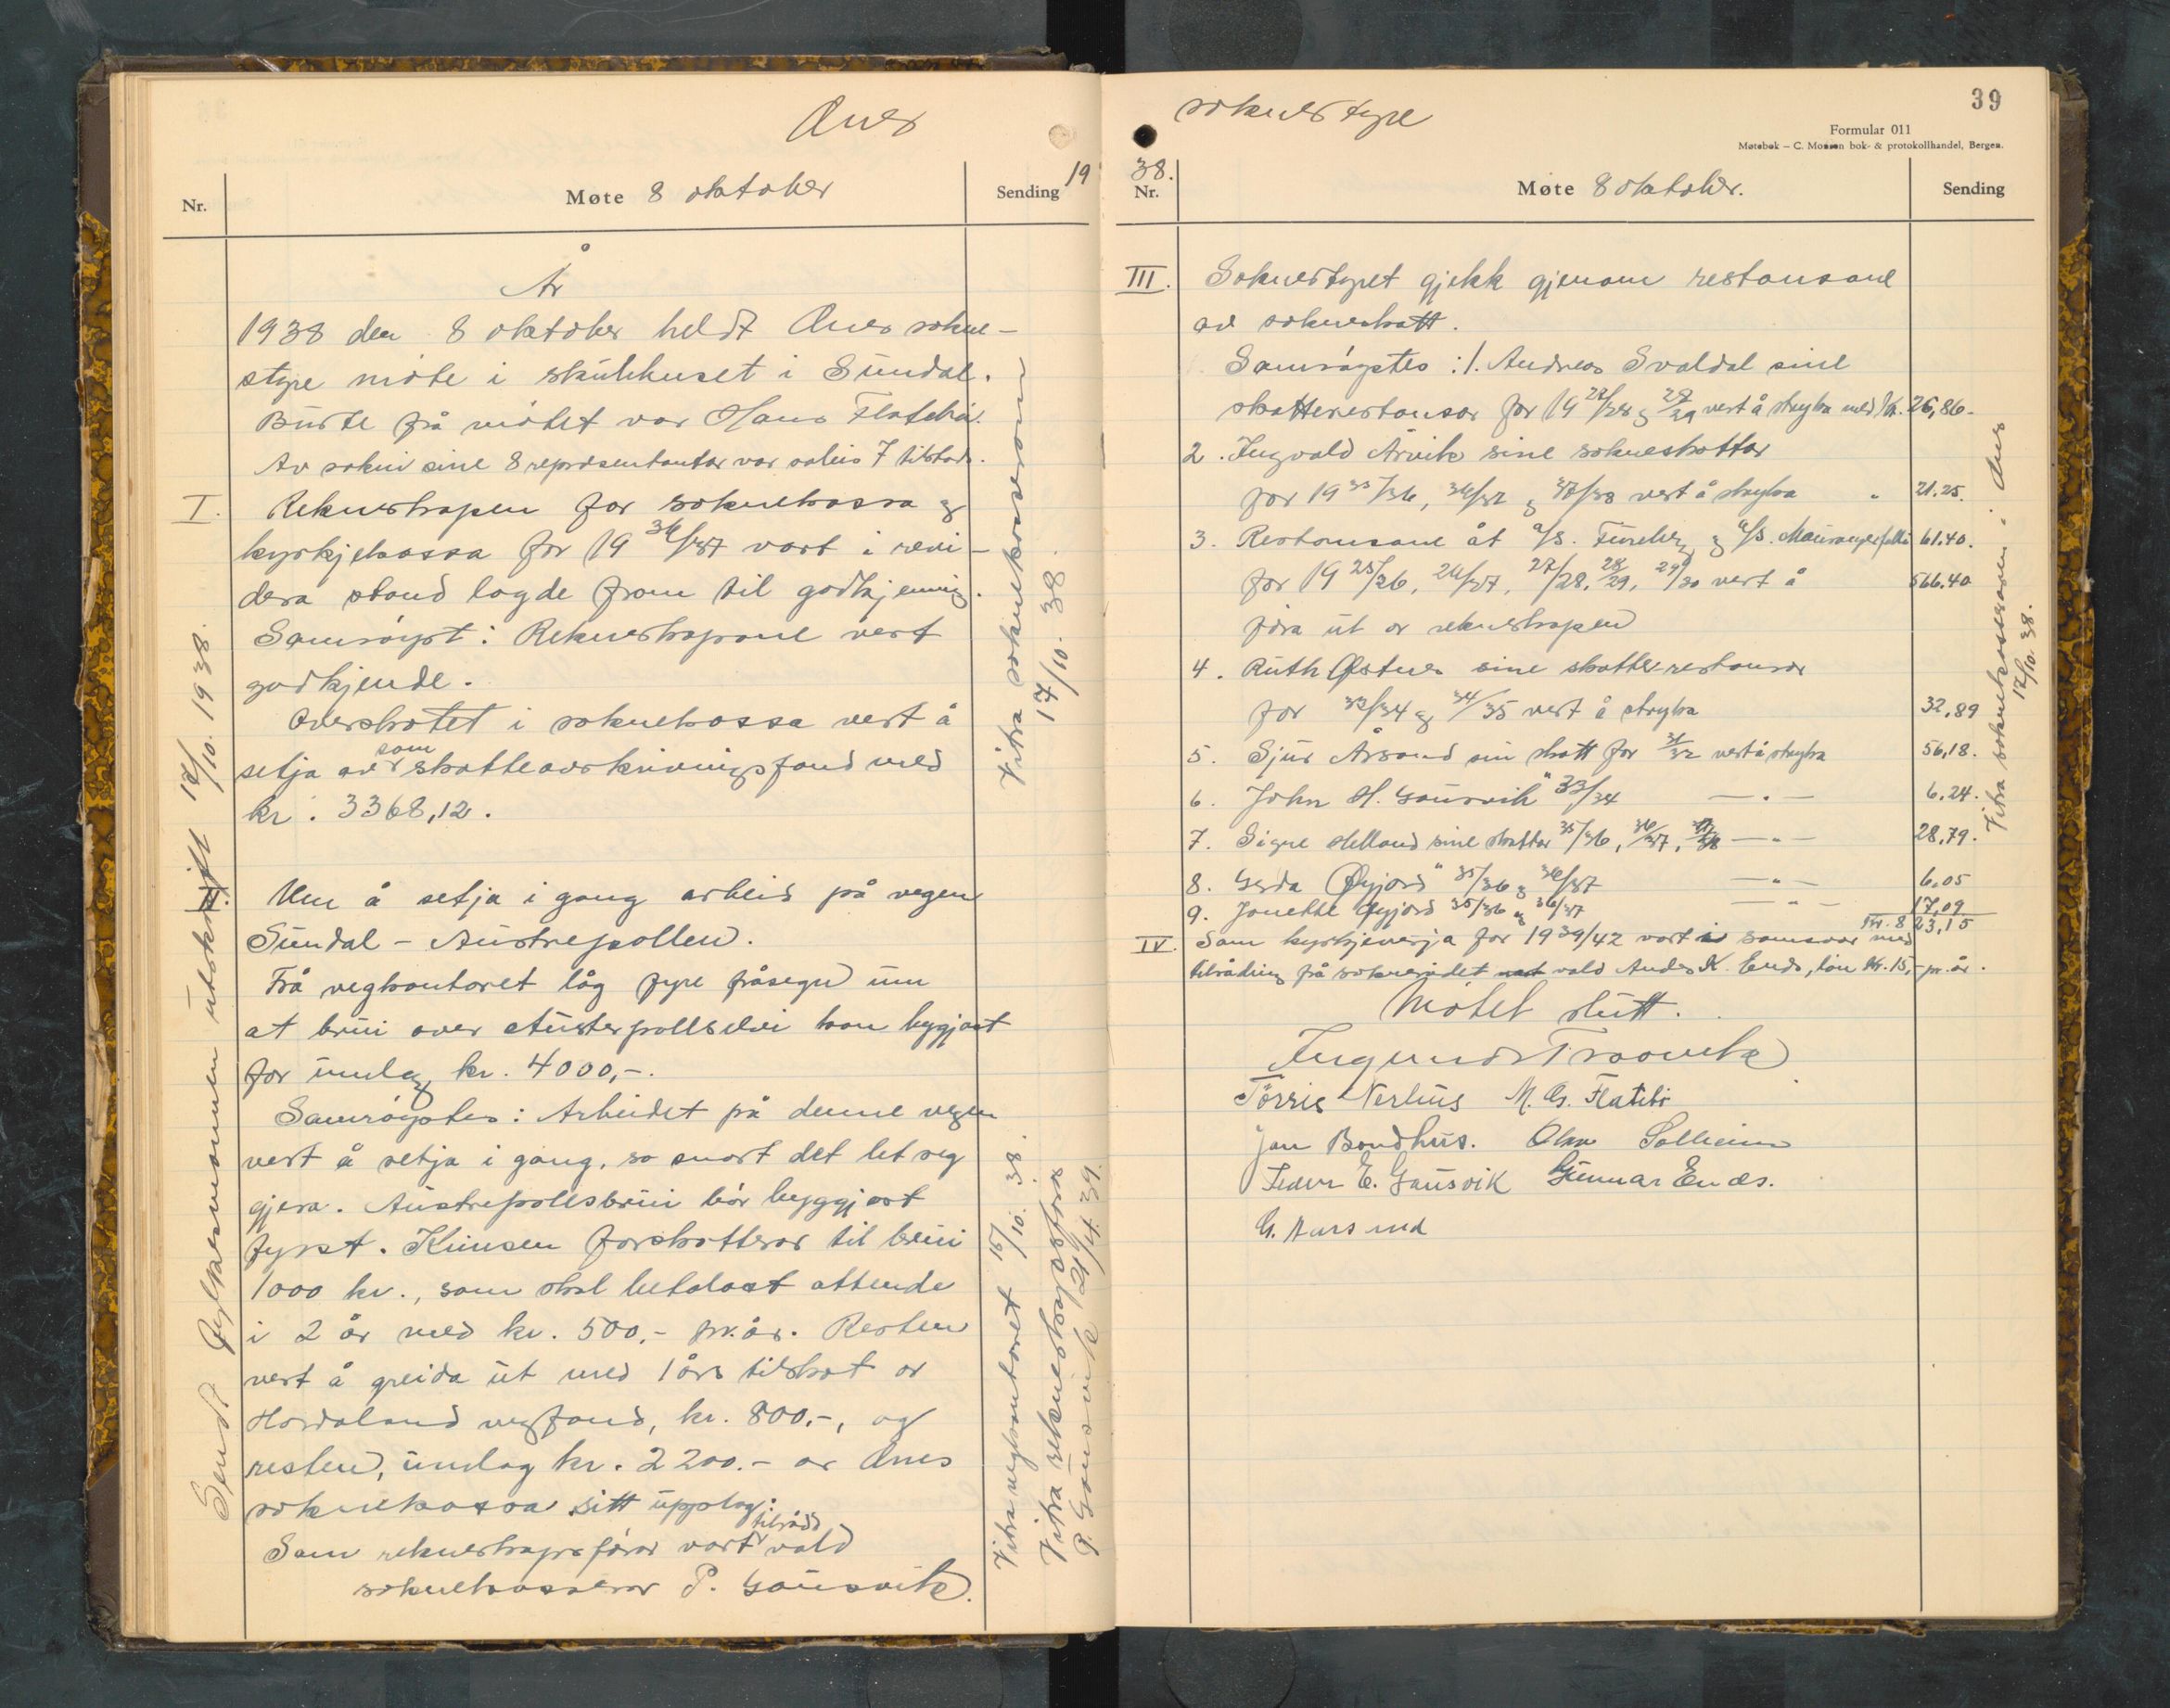 Ænes
Nr.
Møte 8 oktober
Sending
19
År
1938 den 8 oktober heldt Ænes sokne-
styre möte i skülehuset i Sündal.
Bürte frå mötet var Hans Flatebö.
Av sokni sine 8 representantar var soleis 7 tilstads.
I.
Rekneskapen for soknekassa og
kyrkjekassa for 19 36/37 vart i revi-
dera stand lagde fram til godkjenning.
Samröyst: Rekneskapane vert
godkjende.
Overskotet i soknekassa vert å
setja av som skatteavskrivingsfond med
kr. 3368,12.
II.
Um å setja i gang arbeid på vegen
Sündal - Austrepollen.
Frå vegkontoret låg fyre fråsegn um
at brui over Austerpollselvi kan byggjast
for umlag kr. 4000,-.
Samröystes: Arbeidet på denne vegen
vert å setja i gang, so snart det let seg
gjera. Austrepollsbrui bör byggjast
fyrst. Kunsen forskotterar til brui
1000 kr., som skal betalast attende
i 2 år med kr. 500,- pr. år. Resten
vert å greida üt med 1 års tilskot or
Hordaland vegfond, kr. 800,-, og
resten, umlag kr. 2200.- or Ænes
soknekassa sitt upplag.
Som rekneskapsförar vart tilrådd vald
soknekasserar P. Gausvik.
Sendt fylkesmannen utskrift 17/10. 1938.
Vitra soknekasseraren
17/10. 38.
Vitra vegkontoret 15/10. 38.
Vitra rekneskapsförar
P. Gausvik 21/4. 39.
soknestyre
39
Formular 011
Møtebok – C. Monsen bok- & protokollhandel, Bergen.
38.
Nr.
Møte 8 oktober.
Sending
III.
Soknestyret gjekk gjenom restansane
av sokneskatt.
Samröystes: 1. Andreas Svaldal sine
skatterestansar for 19 27/28 og 28/29 vert å stryka med kr. 26,86.
2. Ingvald Årvik sine sokneskattar
for 19 35/36, 36/37 og 37/38 vert å stryka " 21.25.
3. Restansane åt A/S. Füreberg og A/S. Maurangerfalli 61.40.
for 19 25/26, 26/27, 27/28, 28/29, 29/30 vert å 566.40
föra üt or rekneskapen
4. Ruth Østnes sine skatterestansar
for 33/34 og 34/35 vert å stryka 32,89
5. Sjur Årsand sin skatt for 31/32 vert å stryka 56,18.
6. John H. Gausvik " 33/34 — " — 6.24.
7. Signe Helland sine skattar 35/36, 36/37, 37/38 — " — 28,79.
8. Gerda Øyjord " 35/36 og 36/37 — " — 6.05
9. Jonette Øyjord 35/36 og 36/37 — " — 17,09
Kr. 823,15
IV.
Som kyrkjeverja for 1939/42 vart i samsvar med
tilråding frå soknerådet vald Anders K. Enes, lön kr. 15,- pr. år.
Mötet slütt.
Ingmund Traavik
Törris Nerhus M. G. Flatebö
Jan Bondhüs. Olav Solheim
Peder E. Gausvik Gunnar Enes.
G. Aarsand
Vitra soknekasseraren i Ænes
17/10. 38.